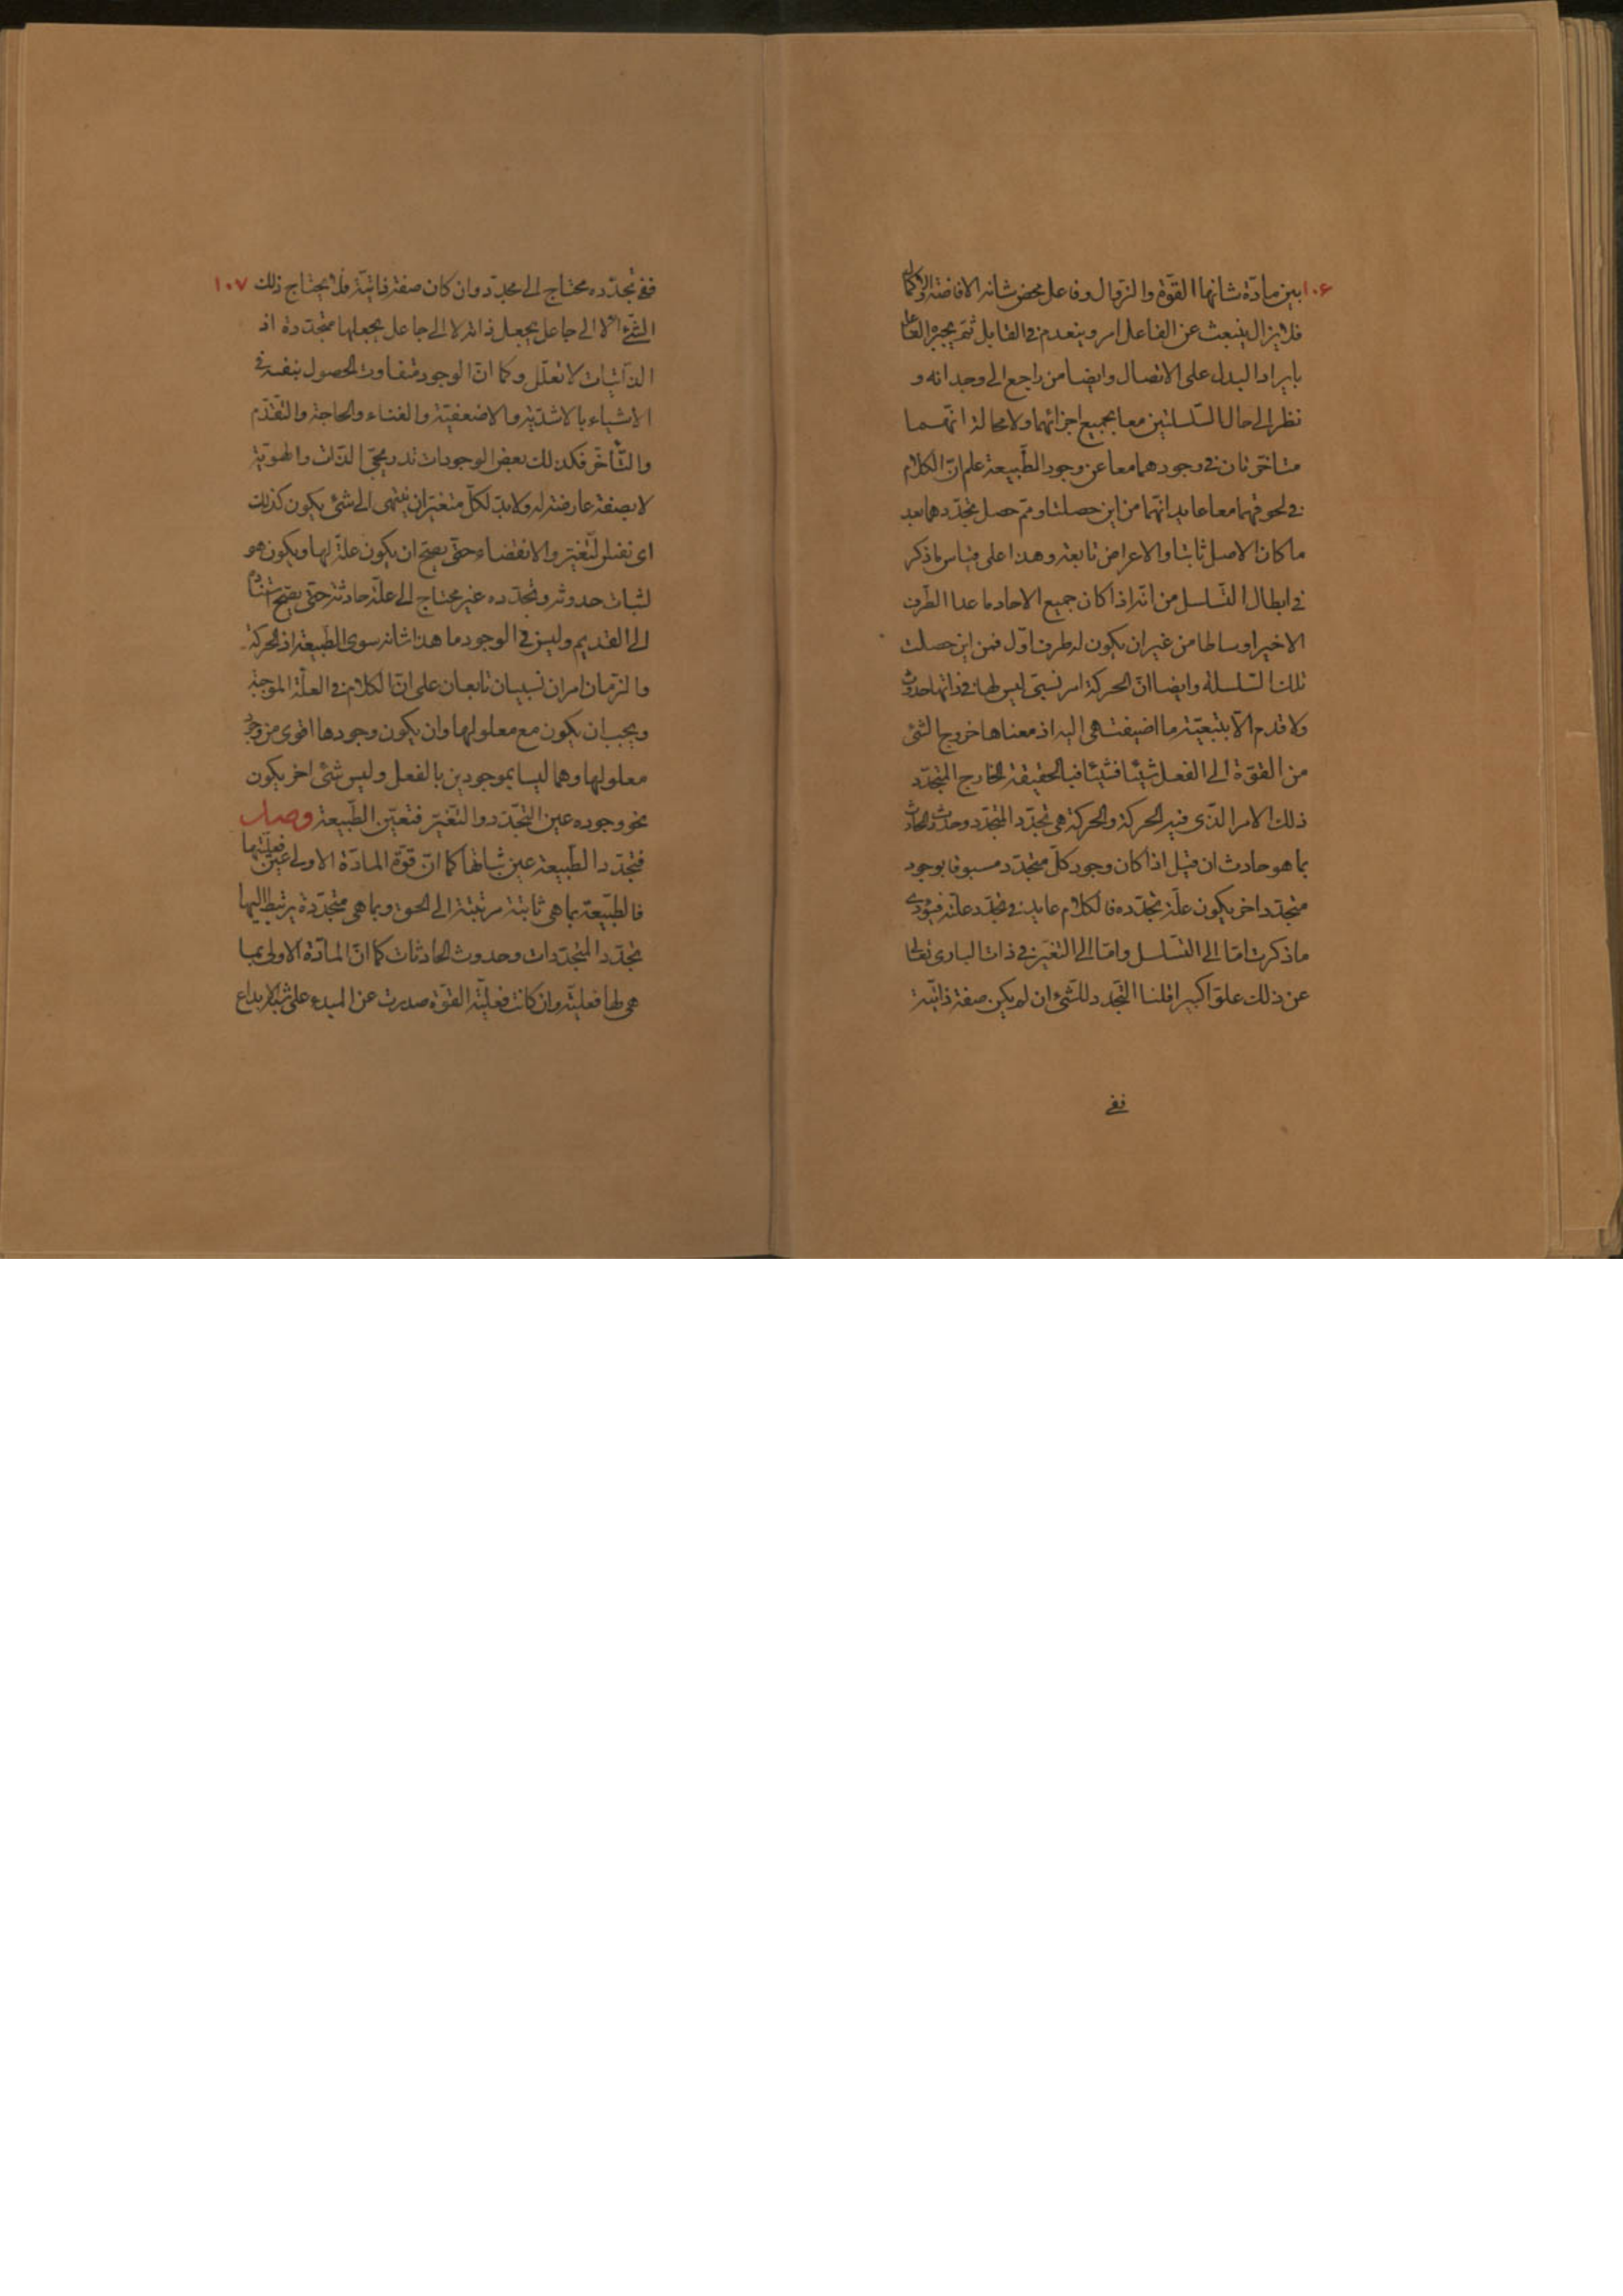 ١٠۶ بين مادّة شانها القوّة والزوال وفاعل محض شانه الافاضة والاكمال
فلايزال ينبعث عن الفاعل امر وينعدم في القابل ثمّ يجبره الفاعل
بايراد البدل على الاتصال وايضا من راجع الى وجدانه و
نظر الى حال السّلسلتين معا بجميع اجزائهما ولا محالة انّهما
متاخّرتان في وجودهما معا عن وجود الطّبيعة علم انّ الكلام
في لحوقهما معا عايد انّهما من اين حصلتا وممّ حصل تجدّدهما بعد
ما كان الاصل ثابتا والاعراض تابعة وهذا على قياس ما ذكر
في ابطال التّسلسل من انّه اذا كان جميع الاحاد ما عدا الطّرف
الاخير اوساطا من غير ان يكون له طرف اوّل فمن اين حصلت
تلك السّلسلة وايضا انّ الحركة امر نسبيّ ليس لها في ذاتها حدوث
ولا قدم الّا بتبعيّة ما اضيفت هي اليه اذ معناها خروج الشّئ
من القوّة الى الفعل شيئا فشيئا فبالحقيقة الخارج المتجدّد
ذلك الامر الّذى فيه الحركة والحركة هي تجدّد المتجدّد وحدوث الحادث
بما هو حادث ان قيل اذا كان وجود كلّ متجدّد مسبوقا بوجود
متجدّد اخر يكون علّة تجدّده فالكلام عايد في تجدّد علّته فيؤدى
ما ذكرت امّا الى التّسلسل وامّا الى التغيّر في ذات البارى تعالى
عن ذلك علوّا كبيرا قلنا التّجدّد للشّئ ان لم يكن صفة ذاتيّة
ففي
ففي تجدّده محتاج الى مجدّد وان كان صفة ذاتيّة فلا يحتاج ذلك ١٠٧
الشّئ الّا الى جاعل يجعل ذاته لا الى جاعل يجعلها متجدّدة اذ
الذّاتيات لا تعلّل وكما انّ الوجود متفاوت الحصول بنفسه في
الاشياء بالاشدّية والاضعفيّة والغناء والحاجة والتّقدّم
والتّأخّر فكذلك بعض الوجودات تدريجيّ الذّات والهويّة
لا بصفة عارضة له ولا بدّ لكلّ متغيّر ان ينتهى الى شئ يكون كذلك
اى نفس التّغيّر والانقضاء حتّى يصحّ ان يكون علّة لها ويكون هو
لثبات حدوثه وتجدّده غير محتاج الى علّة حادثة حتّى يصحّ استناده
الى القديم وليس في الوجود ما هذا شانه سوى الطّبيعة اذ الحركة
والزّمان امران نسبيان تابعان على انّ الكلام في العلّة الموجبة
ويجب ان يكون مع معلولها وان يكون وجودها اقوى من وجود
معلولها وهما ليسا بموجودين بالفعل وليس شئ اخر يكون
نحو وجوده عين التّجدّد والتّغيّر فتعيّن الطّبيعة وصل
فتجدّد الطّبيعة عين ثباتها كما انّ قوّة المادّة الاولى عين فعليّتها
فالطّبيعة بما هي ثابتة مرتبتة الى الحق وبما هي متجدّدة يرتبط اليها
تجدّد المتجدّدات وحدوث الحادثات كما انّ المادّة الاولى بما
هي لها فعليّة وان كانت فعليّة القوّة صدرت عن المبدء على سبيل الابداع